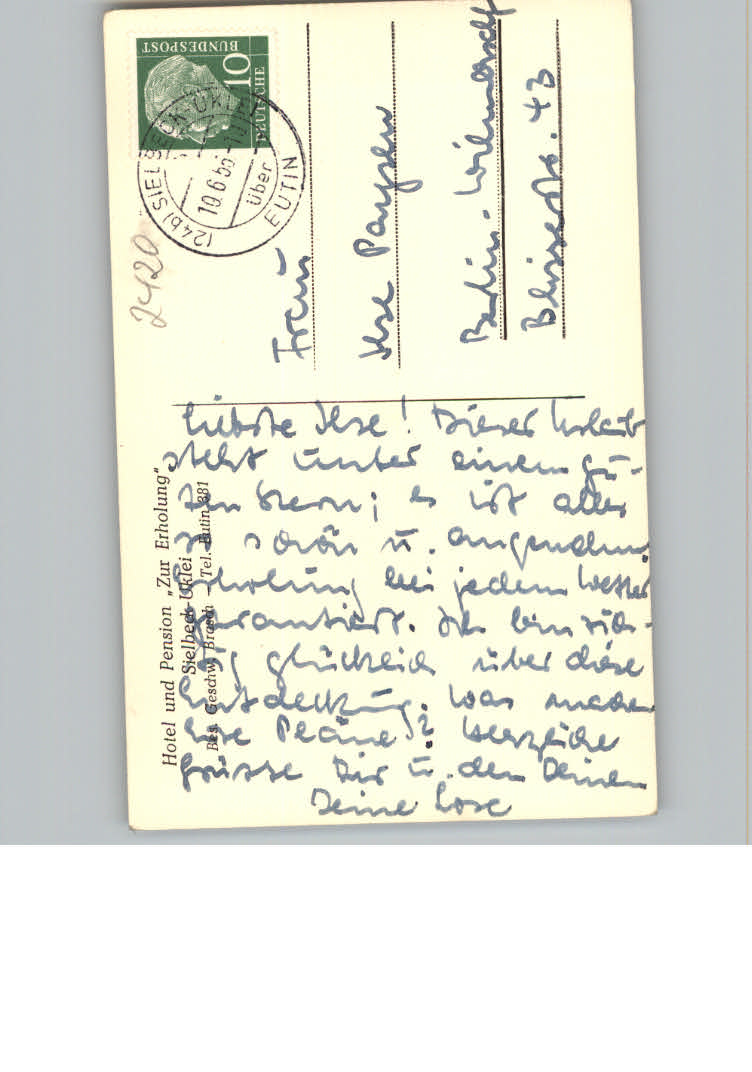 Hotel und Pension „Zur Erholung"
Sielbeck-Uklei
Bes. Geschw. Brasch - Tel. Eutin 881
Liebste Ilse! Dieser Urlaub
steht unter einem gu-
ten Stern; es ist alles
so schön u. angenehm,
Erholung bei jedem Wetter
garantiert. Ich bin rich-
tig glücklich über diese
Entdeckung. Was machen
Eure Pläne? Herzliche
Grüsse Dir u. den Deinen
Deine Lore
DEUTSCHE
BUNDESPOST
10
(24b) SIELBECK-UKLEI
10.6.5
über
EUTIN
2420
Frau
Ilse Paysen
Berlin-Wilmersdorf
Blissestr. 43